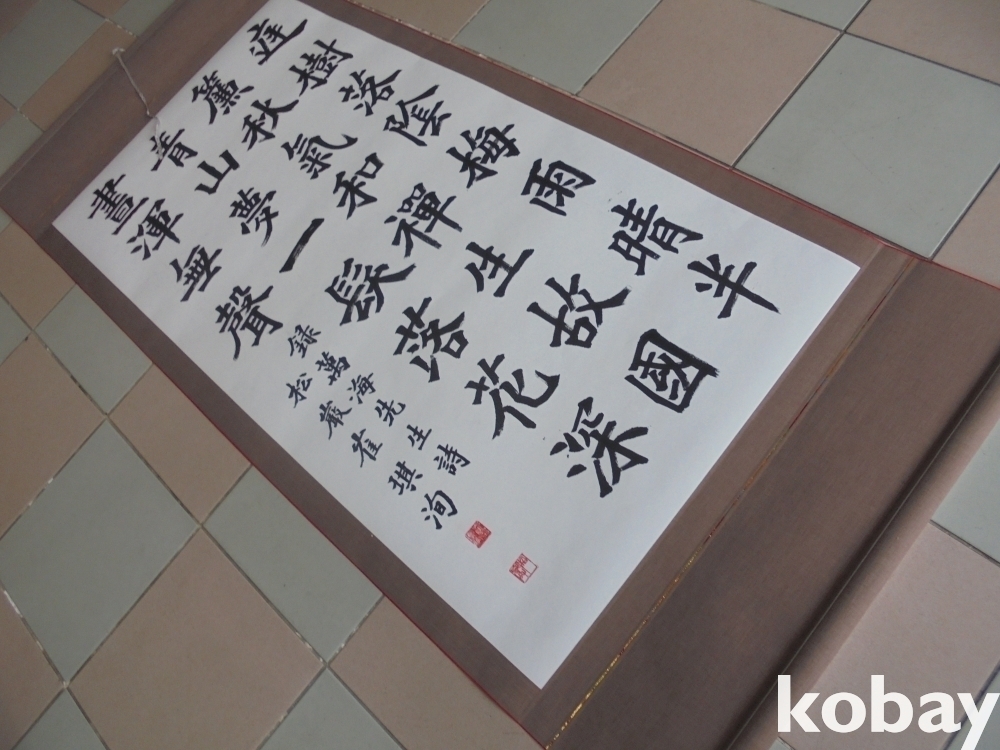 庭樹落陰梅雨晴半
簾秋氣和禪生故國
青山夢一髮落花深
晝渾無聲
錄萬海先生詩
松巖崔琪洵
kobay